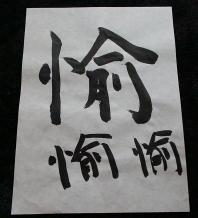 愉
愉愉